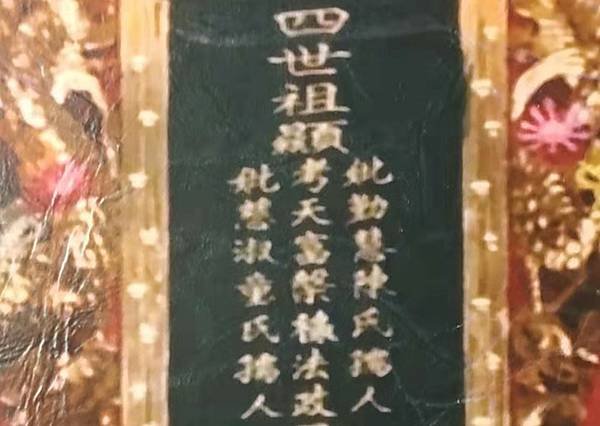 四世祖顯
妣勤慧陳氏孺人
考天富榮法政
妣慧淑童氏孺人